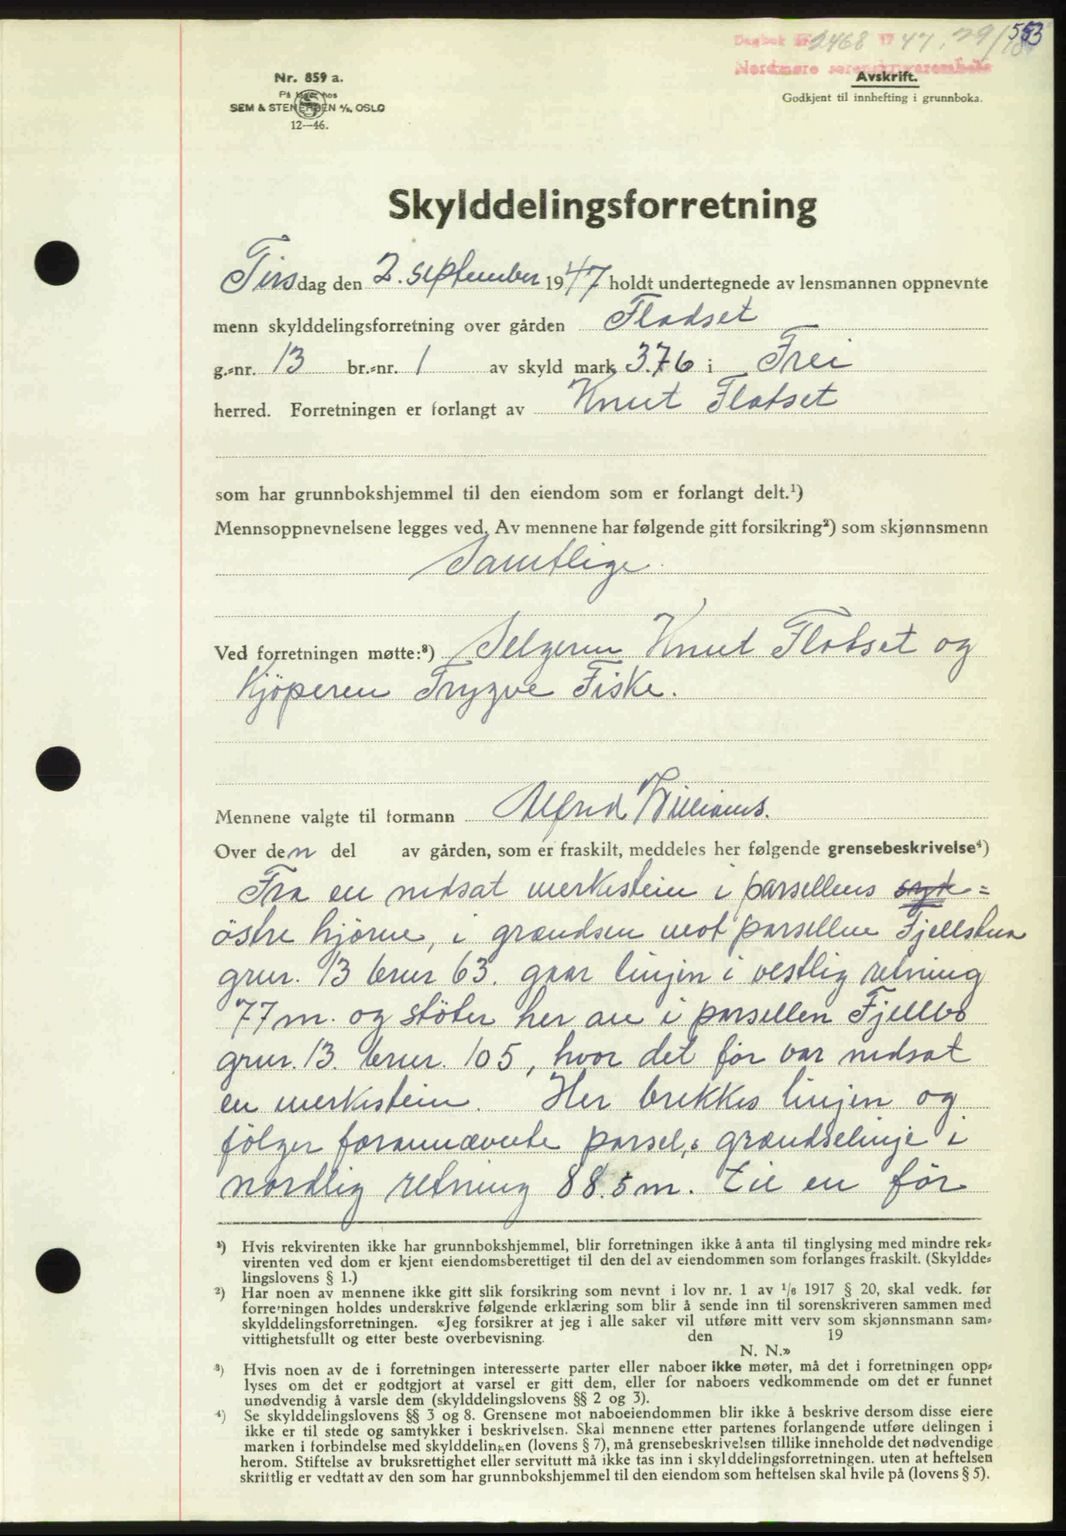 553
Dagbok nr. 2468 1947. 29/10
Nordmøre sorenskriverembete
Nr. 859 a.
På lager hos
SEM & STENERSEN A/S, OSLO
12—46.
Avskrift.
Godkjent til innhefting i grunnboka.
Skylddelingsforretning
Tirsdag den 2. september 1947 holdt undertegnede av lensmannen oppnevnte
menn skylddelingsforretning over gården Flodset
g.-nr. 13 br.-nr. 1 av skyld mark 3.76 i Frei
herred. Forretningen er forlangt av Knut Flatset
som har grunnbokshjemmel til den eiendom som er forlangt delt.¹)
Mennsoppnevnelsene legges ved. Av mennene har følgende gitt forsikring²) som skjønnsmenn
Samtlige.
Ved forretningen møtte:³) Selgeren Knut Flatset og
Kjöperen Trygve Fiske.
Mennene valgte til formann Alfred Williams.
Over den del av gården, som er fraskilt, meddeles her følgende grensebeskrivelse⁴)
Fra en nedsat merkestein i parsellens syd=
östre hjörne, i grændsen mot parsellen Fjellstua
grnr. 13 brnr 63. gaar linjen i vestlig retning
77 m. og stöter her an i parsellen Fjellbo
grnr. 13. brnr. 105, hvor det för var nedsat
en merkestein. Her brekkes linjen og
fölger forannævnte parsels grændselinje i
nordlig retning 88.5 m. til en för
¹) Hvis rekvirenten ikke har grunnbokshjemmel, blir forretningen ikke å anta til tinglysing med mindre rek-
virenten ved dom er kjent eiendomsberettiget til den del av eiendommen som forlanges fraskilt. (Skyldde-
lingslovens § 1.)
²) Har noen av mennene ikke gitt slik forsikring som nevnt i lov nr. 1 av 1/6 1917 § 20, skal vedk. før
forretningen holdes underskrive følgende erklæring som blir å sende inn til sorenskriveren sammen med
skylddelingsforretningen. «Jeg forsikrer at jeg i alle saker vil utføre mitt verv som skjønnsmann sam-
vittighetsfullt og etter beste overbevisning. den 19
N. N.»
³) Hvis noen av de i forretningen interesserte parter eller naboer ikke møter, må det i forretningen opp-
lyses om det er godtgjort at varsel er gitt dem, eller for naboers vedkommende om det er funnet
unødvendig å varsle dem (skylddelingslovens §§ 2 og 3).
⁴) Se skylddelingslovens §§ 3 og 8. Grensene mot naboeiendommen blir ikke å beskrive dersom disse eiere
ikke er til stede og samtykker i beskrivelsen. Skal mennene etter partenes forlangende utføre delingen i
marken i forbindelse med skylddelingen (lovens § 7), må grensebeskrivelsen tillike inneholde det nødvendige
herom. Stiftelse av bruksrettighet eller servitutt må ikke tas inn i skylddelingsforretningen. uten at heftelsen
skriftlig er vedtatt av den som har grunnbokshjemmel til den eiendom som heftelsen skal hvile på (lovens § 5).